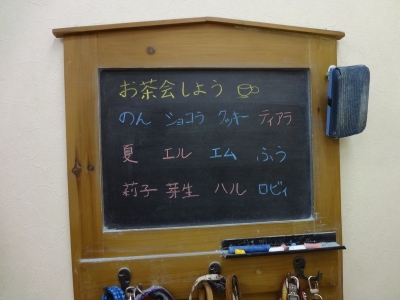 お茶会しよう
のん ショコラ クッキー ティアラ
夏 エル エム ふう
莉子 芽生 ハル ロビィ